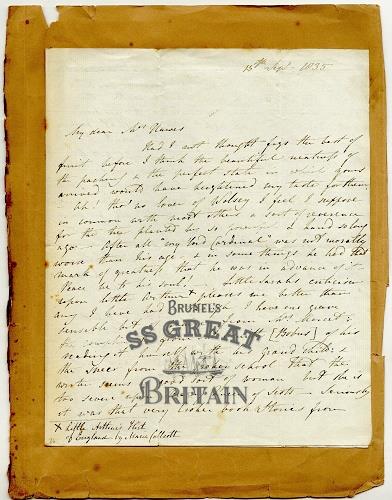 15th Sep. 1835
My dear Mrs Hawes
Had I not thought figs the best of
fruit before I think the beautiful neatness of
the packing & the perfect state in which yours
arrived would have heightened my taste for them
Oh! tho' no lover of Wolsey I feel I suppose
in common with most others a sort of reverence
for the tree planted by so powerful a hand so long
ago. After all "my Lord Cardinal" was not morally
worse than his age, & in some things he had that
mark of greatness that he was in advance of it
Peace be to his soul. Little Sarah's criticism
upon little Arthur x pleases me better than
any I have had I have one grave
sensible but from Mrs
the complaint [Bobus] of his
reading it himself to his Grand child:
the sneer from the school that the
writer seems a good sort of woman but she is
too severe upon Scots - Seriously
it was that very book Stories from
x Little Arthur's Hist
of England by Maria Callcott
BRUNEL'S
SS GREAT
BRITAIN